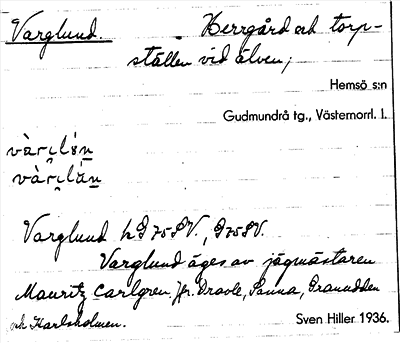 Varglund. Herrgård och torp-
ställen vid älven;
Hemsö s:n
Gudmundrå tg., Västernorrl. l.
Varglund h G 75 SV., G 75 SV.
Varglund äges av jägmästaren
Mauritz Carlgren. Jfr. Dravle, Sanna, Granudden
och Karlsholmen.
Sven Hiller 1936.